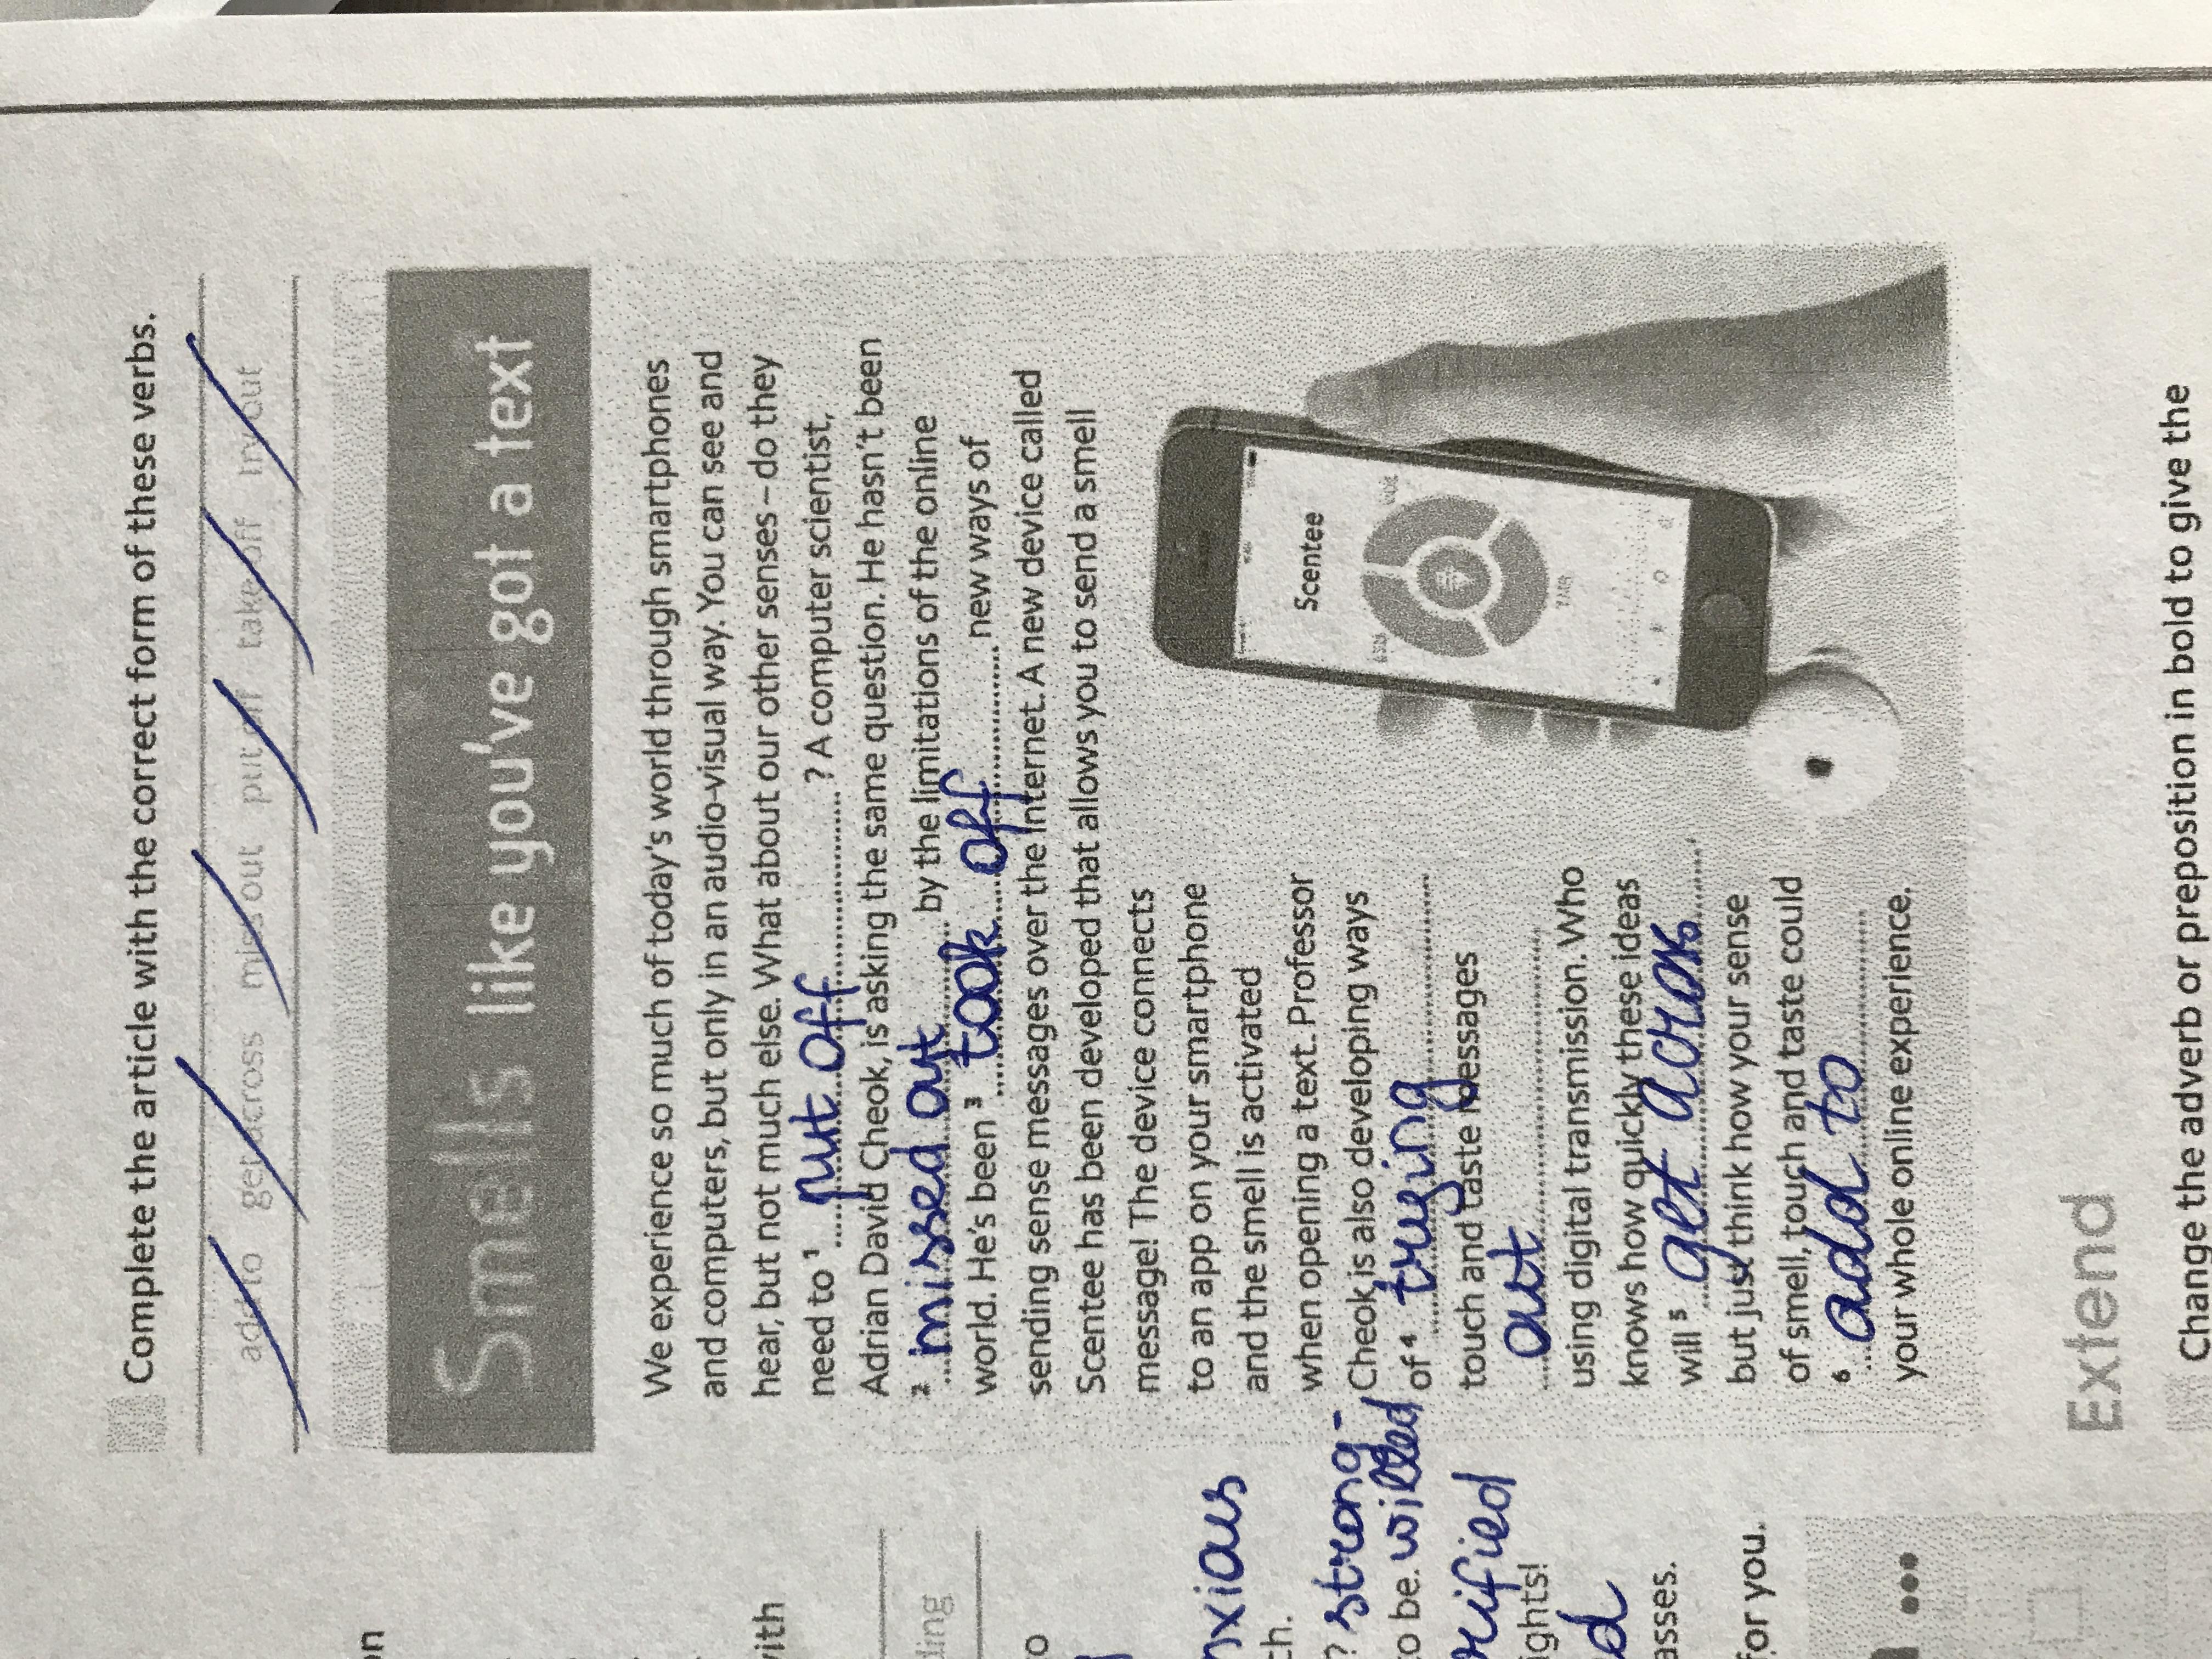 Complete the article with the correct form of these verbs.
add to get across miss out put off take off try out
Smells like you've got a text
We experience so much of today's world through smartphones
and computers, but only in an audio-visual way. You can see and
hear, but not much else. What about our other senses – do they
need to 1 put off ? A computer scientist,
Adrian David Cheok, is asking the same question. He hasn't been
2 missed out by the limitations of the online
world. He's been 3 took off new ways of
sending sense messages over the Internet. A new device called
Scentee has been developed that allows you to send a smell
message! The device connects
to an app on your smartphone
and the smell is activated
when opening a text. Professor
Cheok is also developing ways
of 4 trying
touch and taste messages
out
using digital transmission. Who
knows how quickly these ideas
will 5 get across
but just think how your sense
of smell, touch and taste could
6 add to
your whole online experience.
Scentee
Extend
Change the adverb or preposition in bold to give the
on
with
ding
o
nxious
ch.
? strong-
o be. willed
rified
ights!
d
asses.
for you.